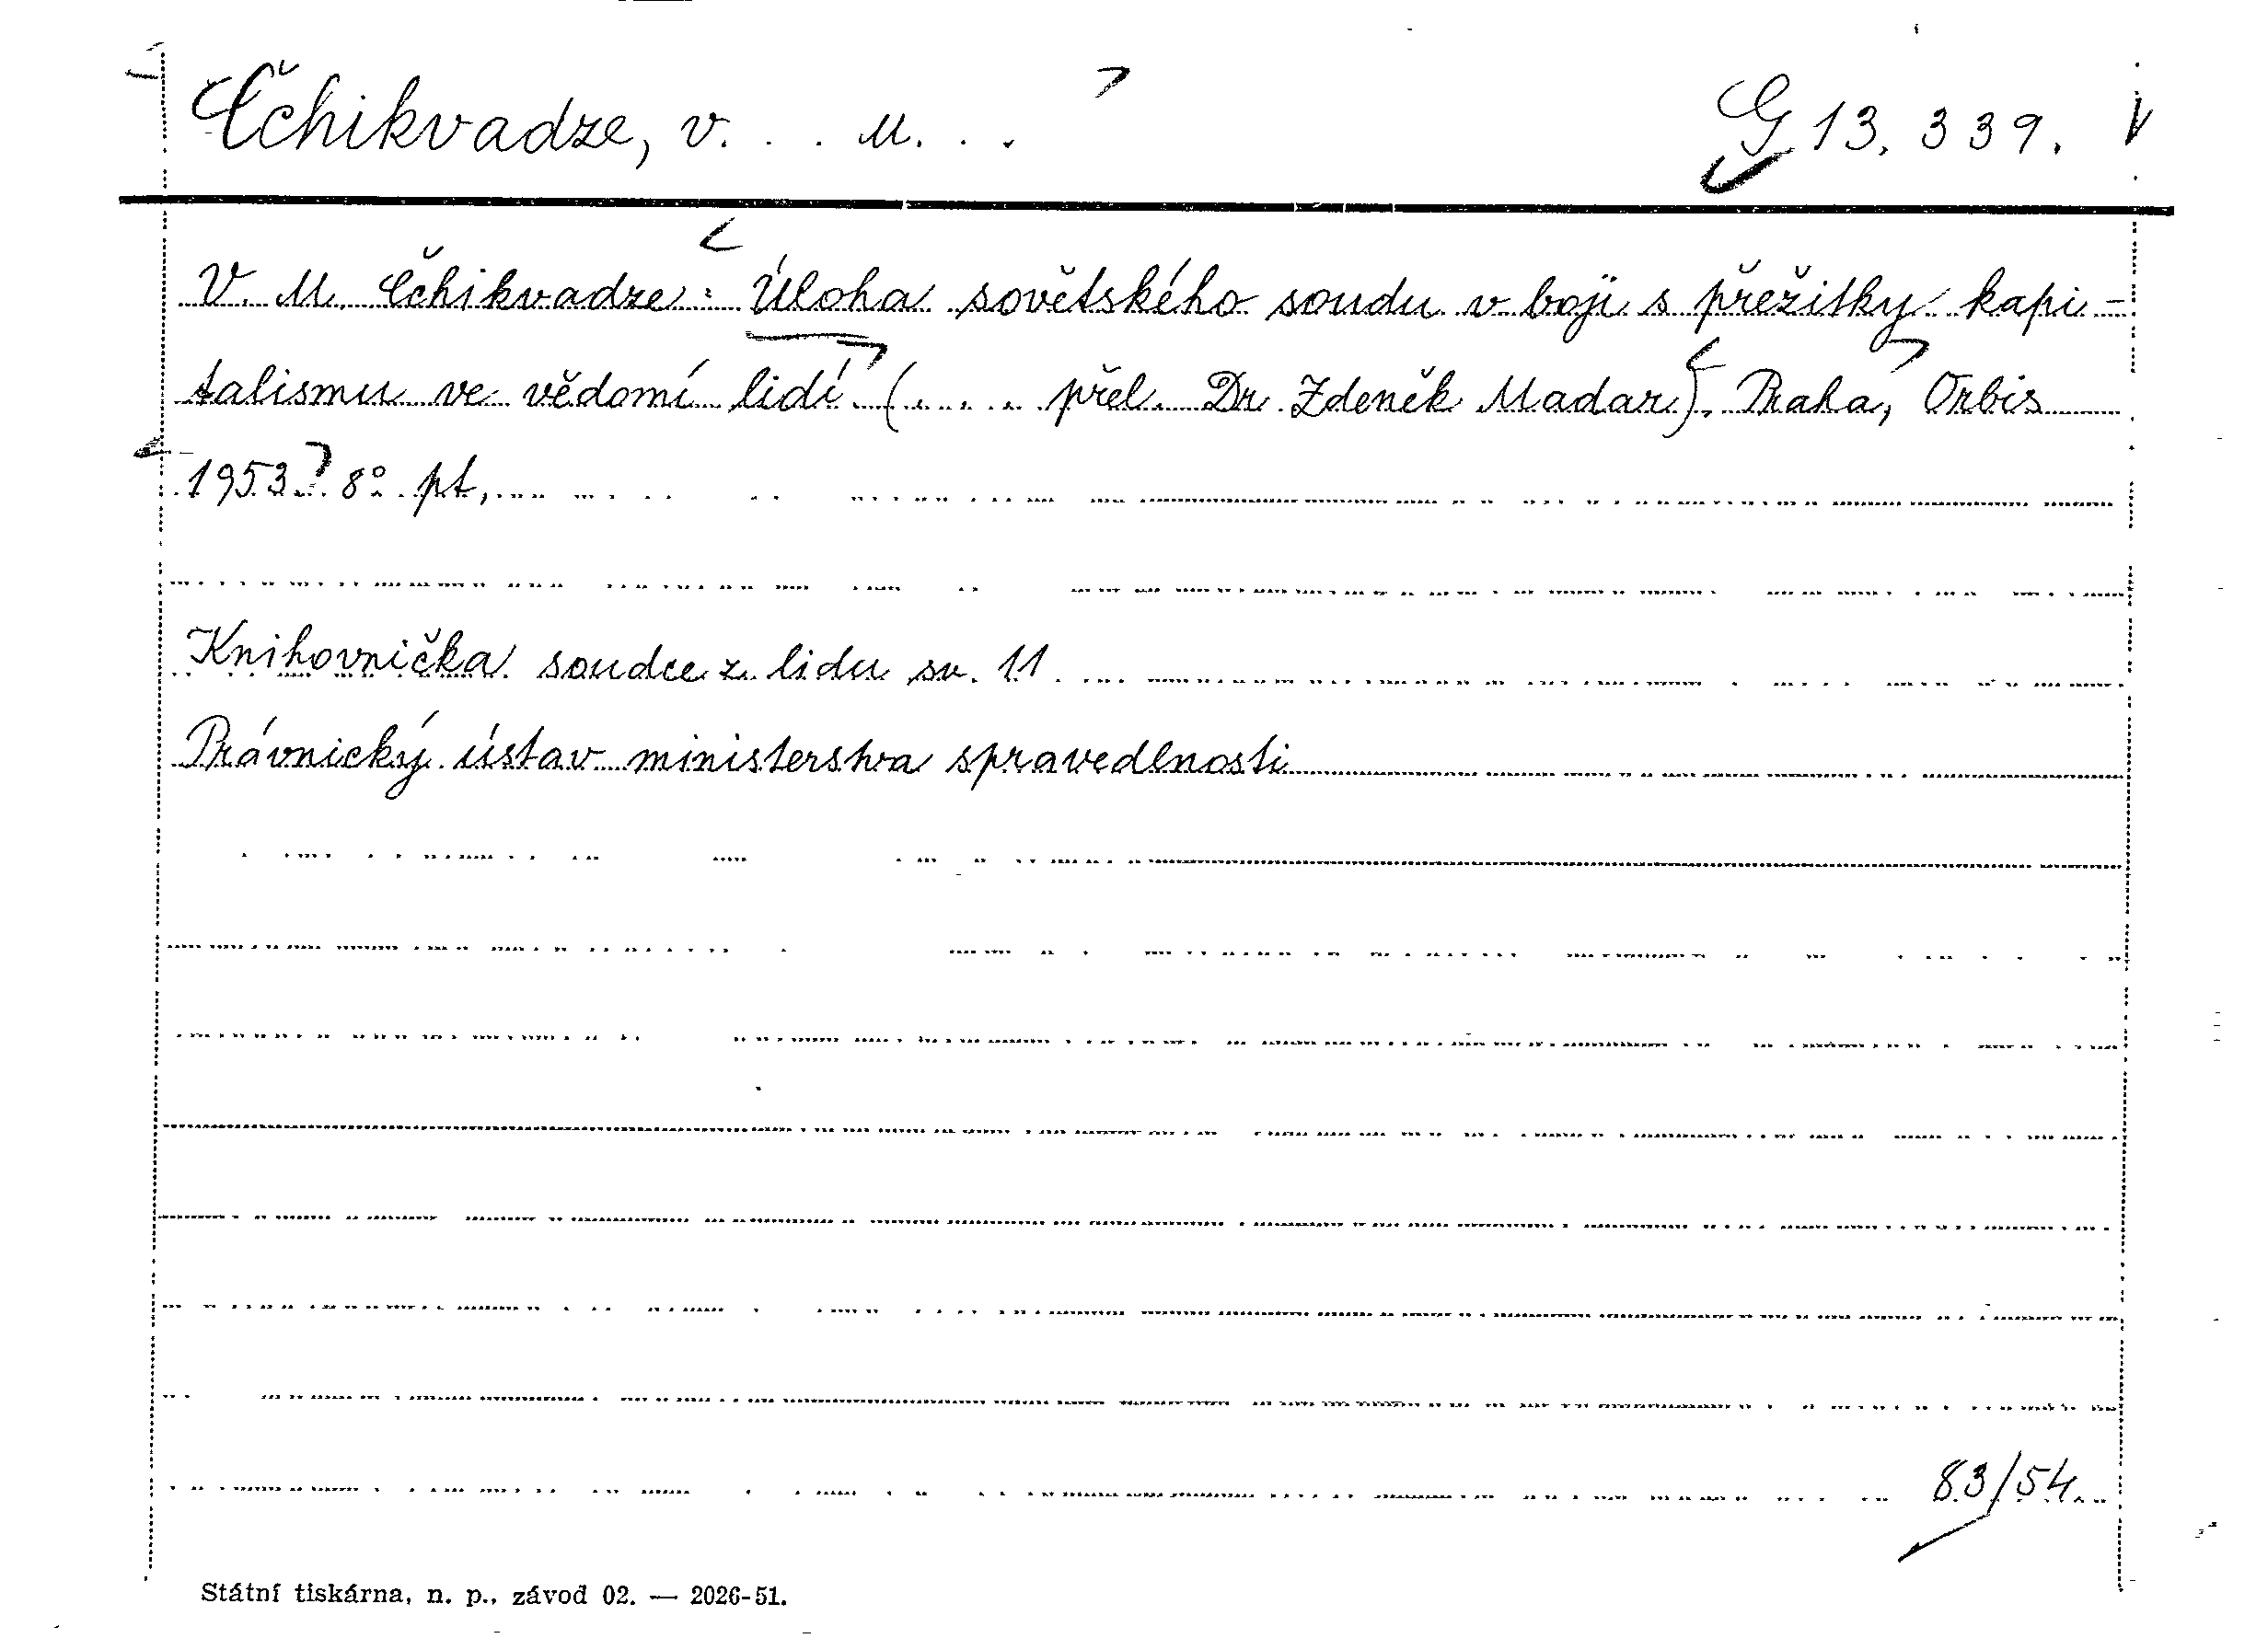 Čchikvadze, V. . . M. . . G 13.339.
V. M. Čchikvadze: Úloha sovětského soudu v boji s přežitky kapi-
talismu ve vědomí lidí (..... přel. Dr. Zdeněk Madar). Praha, Orbis
1953. 8° pt,
Knihovnička soudce z lidu sv. 11
Právnický ústav ministerstva spravedlnosti
83/54.
Státní tiskárna, n. p., závod 02. — 2026-51.